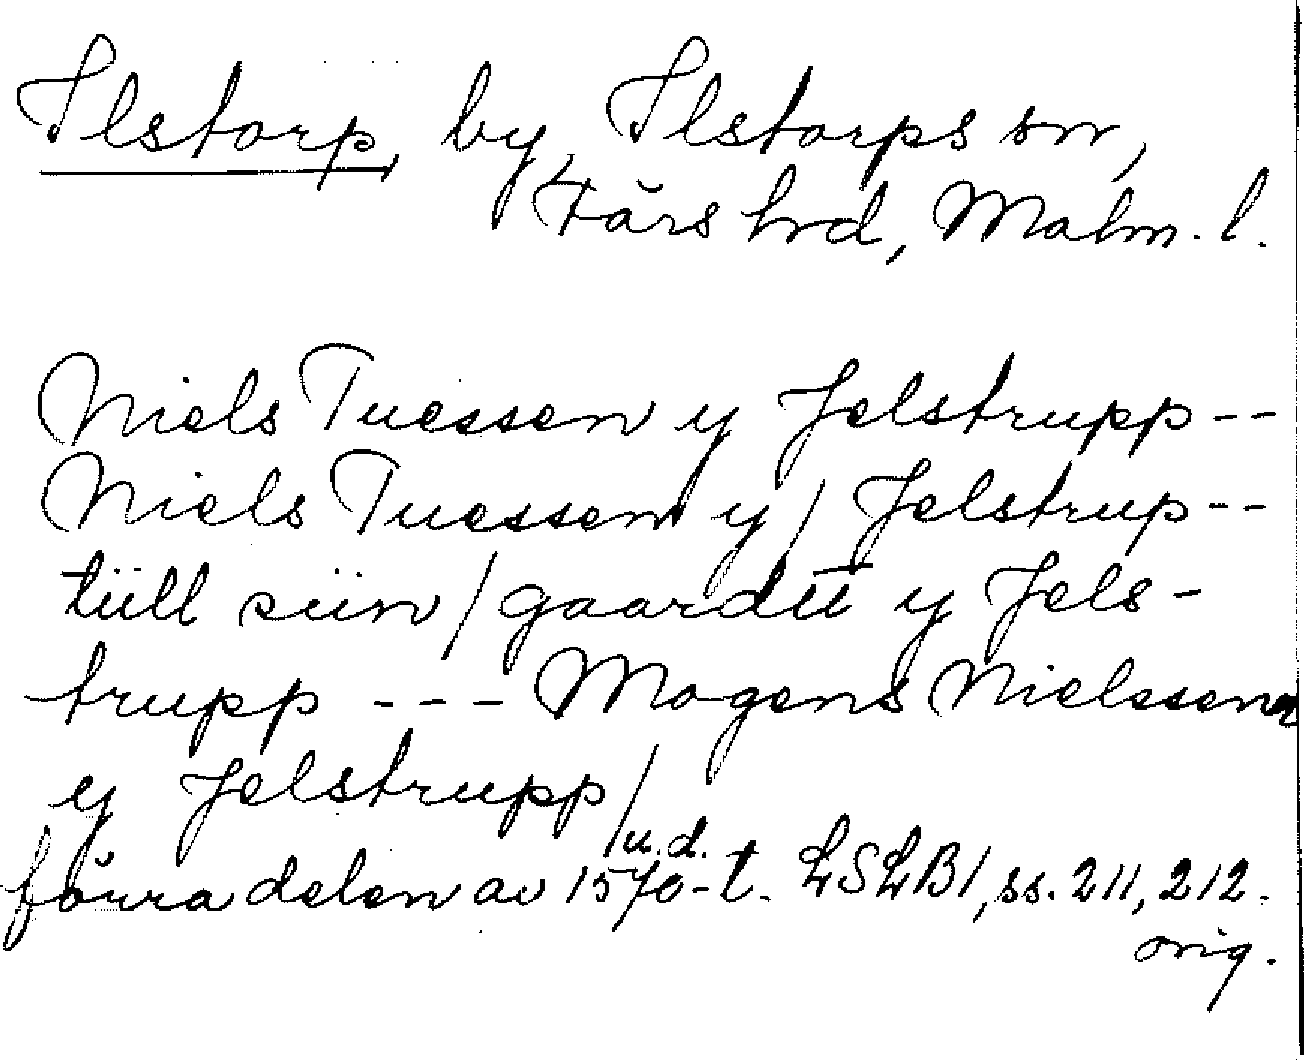 Ilstorp, by, Ilstorps sn,
Färs hrd, Malm. l.
Niels Tuessen y Jelstrupp--
Niels Tuessen y/ Jelstrup--
tüll siin/gaardü y Jels-
trupp --- Mogens Nielssenn
y Jelstrupp/
u.d.
förra delen av 1570-t. LSLB1, ss. 211, 212.
orig.